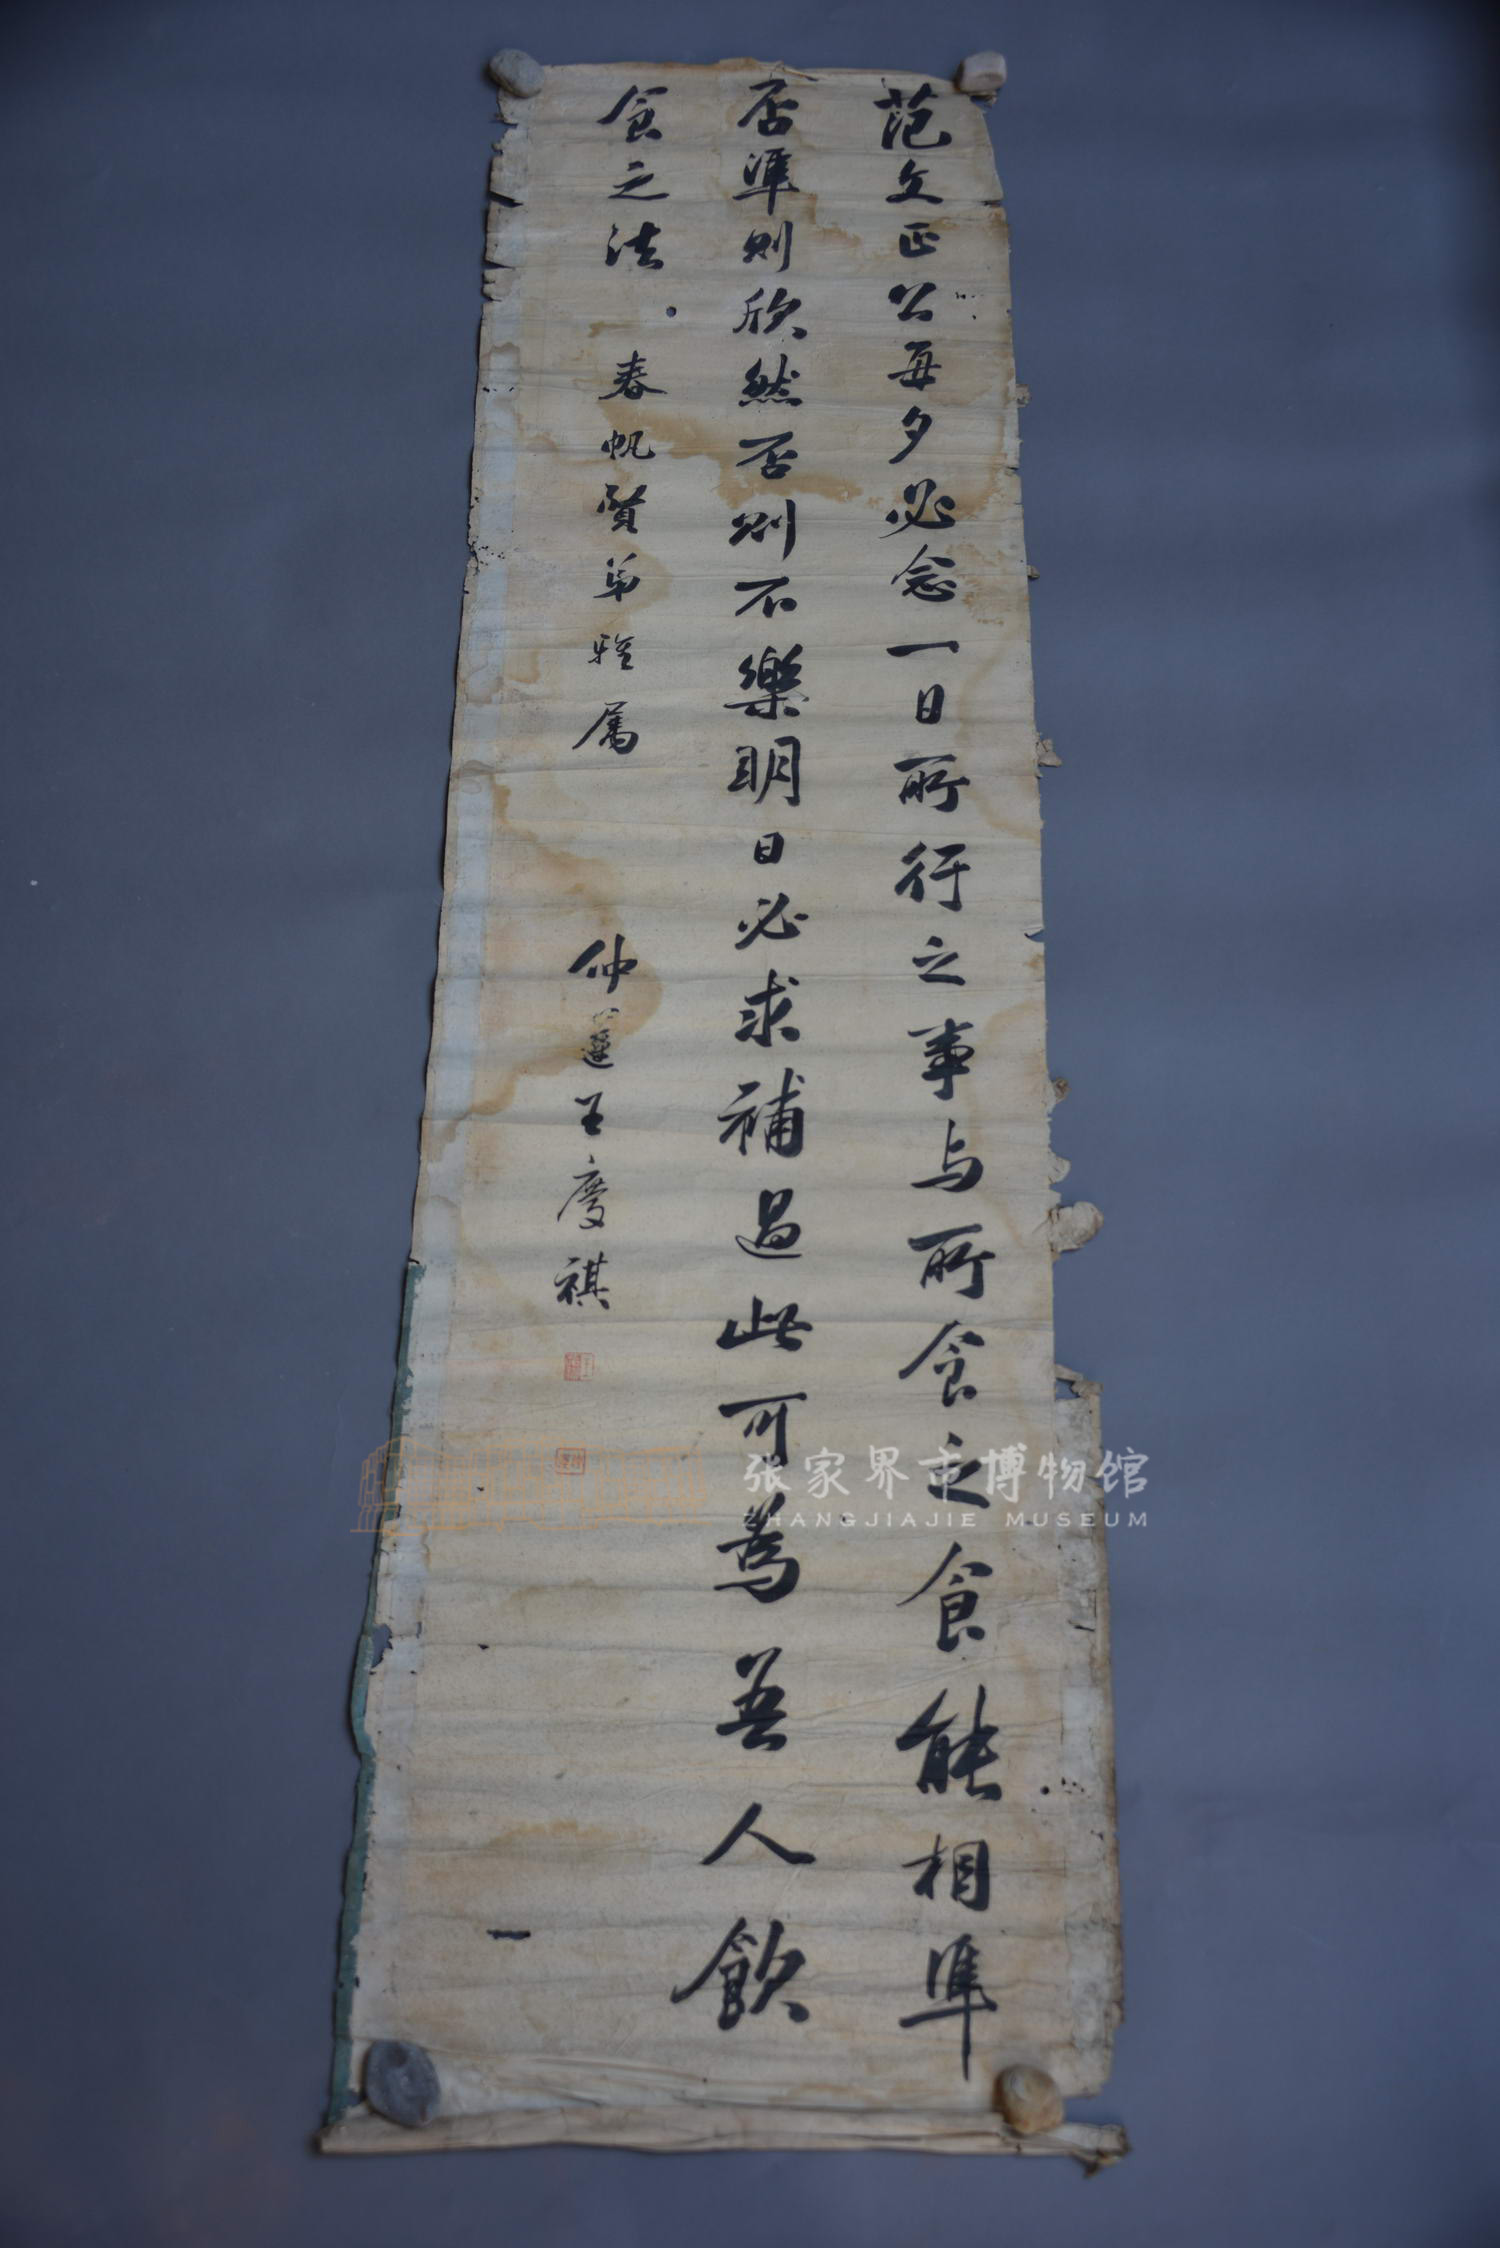 范文正公每夕必念一日所行之事与所食之食能相準
否準則欣然否則不樂明日必求補過此可為吾人飲
食之法 春帆賢弟雅屬 仲蓮王慶祺
张家界市博物馆
ZHANGJIAJIE MUSEUM